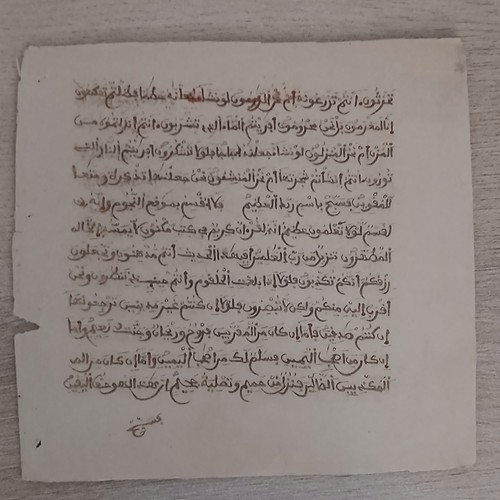 تحرثون ءانتم تزرعونه أم نحن الزرعون لو نشاء لجعلنه حطما فظلتم تفكهون
إنا لمغرمون بل نحن محرومون افريتم الماء الذي تشربون ءانتم انزلتموه من
المزن أم نحن المنزلون لو نشاء جعلنه اجاجا فلولا تشكرون افريتم النار التي
تورون ءانتم انشأتم شجرتها أم نحن المنشئون نحن جعلنها تذكرة ومتعا
للمقوين فسبح باسم ربك العظيم فلا أقسم بموقع النجوم وإنه
لقسم لو تعلمون عظيم إنه لقرءان كريم في كتب مكنون لا يمسه إلا
المطهرون تنزيل من رب العلمين افبهذا الحديث أنتم مدهنون وتجعلون
رزقكم أنكم تكذبون فلولا إذا بلغت الحلقوم وأنتم حينئذ تنظرون ونحن
أقرب إليه منكم ولكن لا تبصرون فلولا إن كنتم غير مدينين ترجعونها
إن كنتم صدقين فأما إن كان من المقربين فروح وريحان وجنت نعيم وأما
إن كان من اصحب اليمين فسلم لك من اصحب اليمين وأما إن كان من
المكذبين الضالين فنزل من حميم وتصلية جحيم إن هذا لهو حق اليقين
فسبح